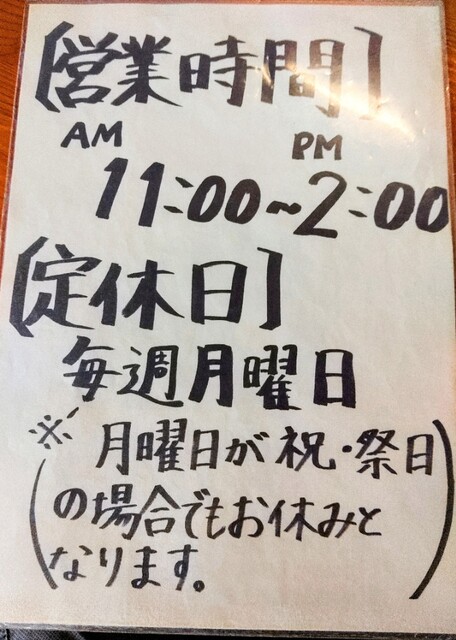 [営業時間]
AM PM
11:00~2:00
[定休日]
毎週月曜日
※ 月曜日が祝・祭日
(の場合でもお休みと
なります。)